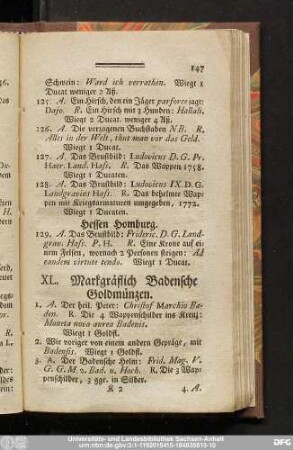 147
Schwein: Ward ich verrathen. Wiegt 1
Ducat weniger 2 Aß.
125. A. Ein Hirsch, den ein Jäger parforce jagt:
Dajo. R. Ein Hirsch mit 3 Hunden: Hallali.
Wiegt 2 Ducat. weniger 4 Aß.
126. A. Die verzogenen Buchstaben N B. R.
Alles in der Welt, thut man vor das Geld.
Wiegt 1 Ducat.
127. A. Das Brustbild: Ludovicus D. G. Pr.
Haer. Land. Hass. R. Das Wappen 1758.
Wiegt 1 Ducaten.
128. A. Das Brustbild: Ludovicus IX. D. G.
Landgravius Hass. R. Das behelmte Wap-
pen mit Kriegsarmaturen umgeben, 1772.
Wiegt 1 Ducaten.
Hessen Homburg.
129. A. Das Brustbild: Frideric. D. G. Land-
grav. Hass. P. H. R. Eine Krone auf ei-
nem Felsen, wornach 2 Personen steigen: Ad
eandem virtute tendo. Wiegt 1 Ducat.
XL. Markgräflich Badensche
Goldmünzen.
1. A. Der heil. Peter: Christof Marchio Ba-
den. R. Die 4 Wappenschilder ins Kreuz:
Moneta nova aurea Badenis.
Wiegt 1 Goldfl.
2. Wie voriger von einem andern Gepräge, mit
Badensis. Wiegt 1 Goldfl.
3. A. Der Badensche Helm: Frid. Mag. V.
G. G. M. z. Bad. u. Hoch. R. Die 3 Wap-
penschilder, 3 gge. in Silber.
K 2 4. A.
Universitäts- und Landesbibliothek Sachsen-Anhalt
DFG